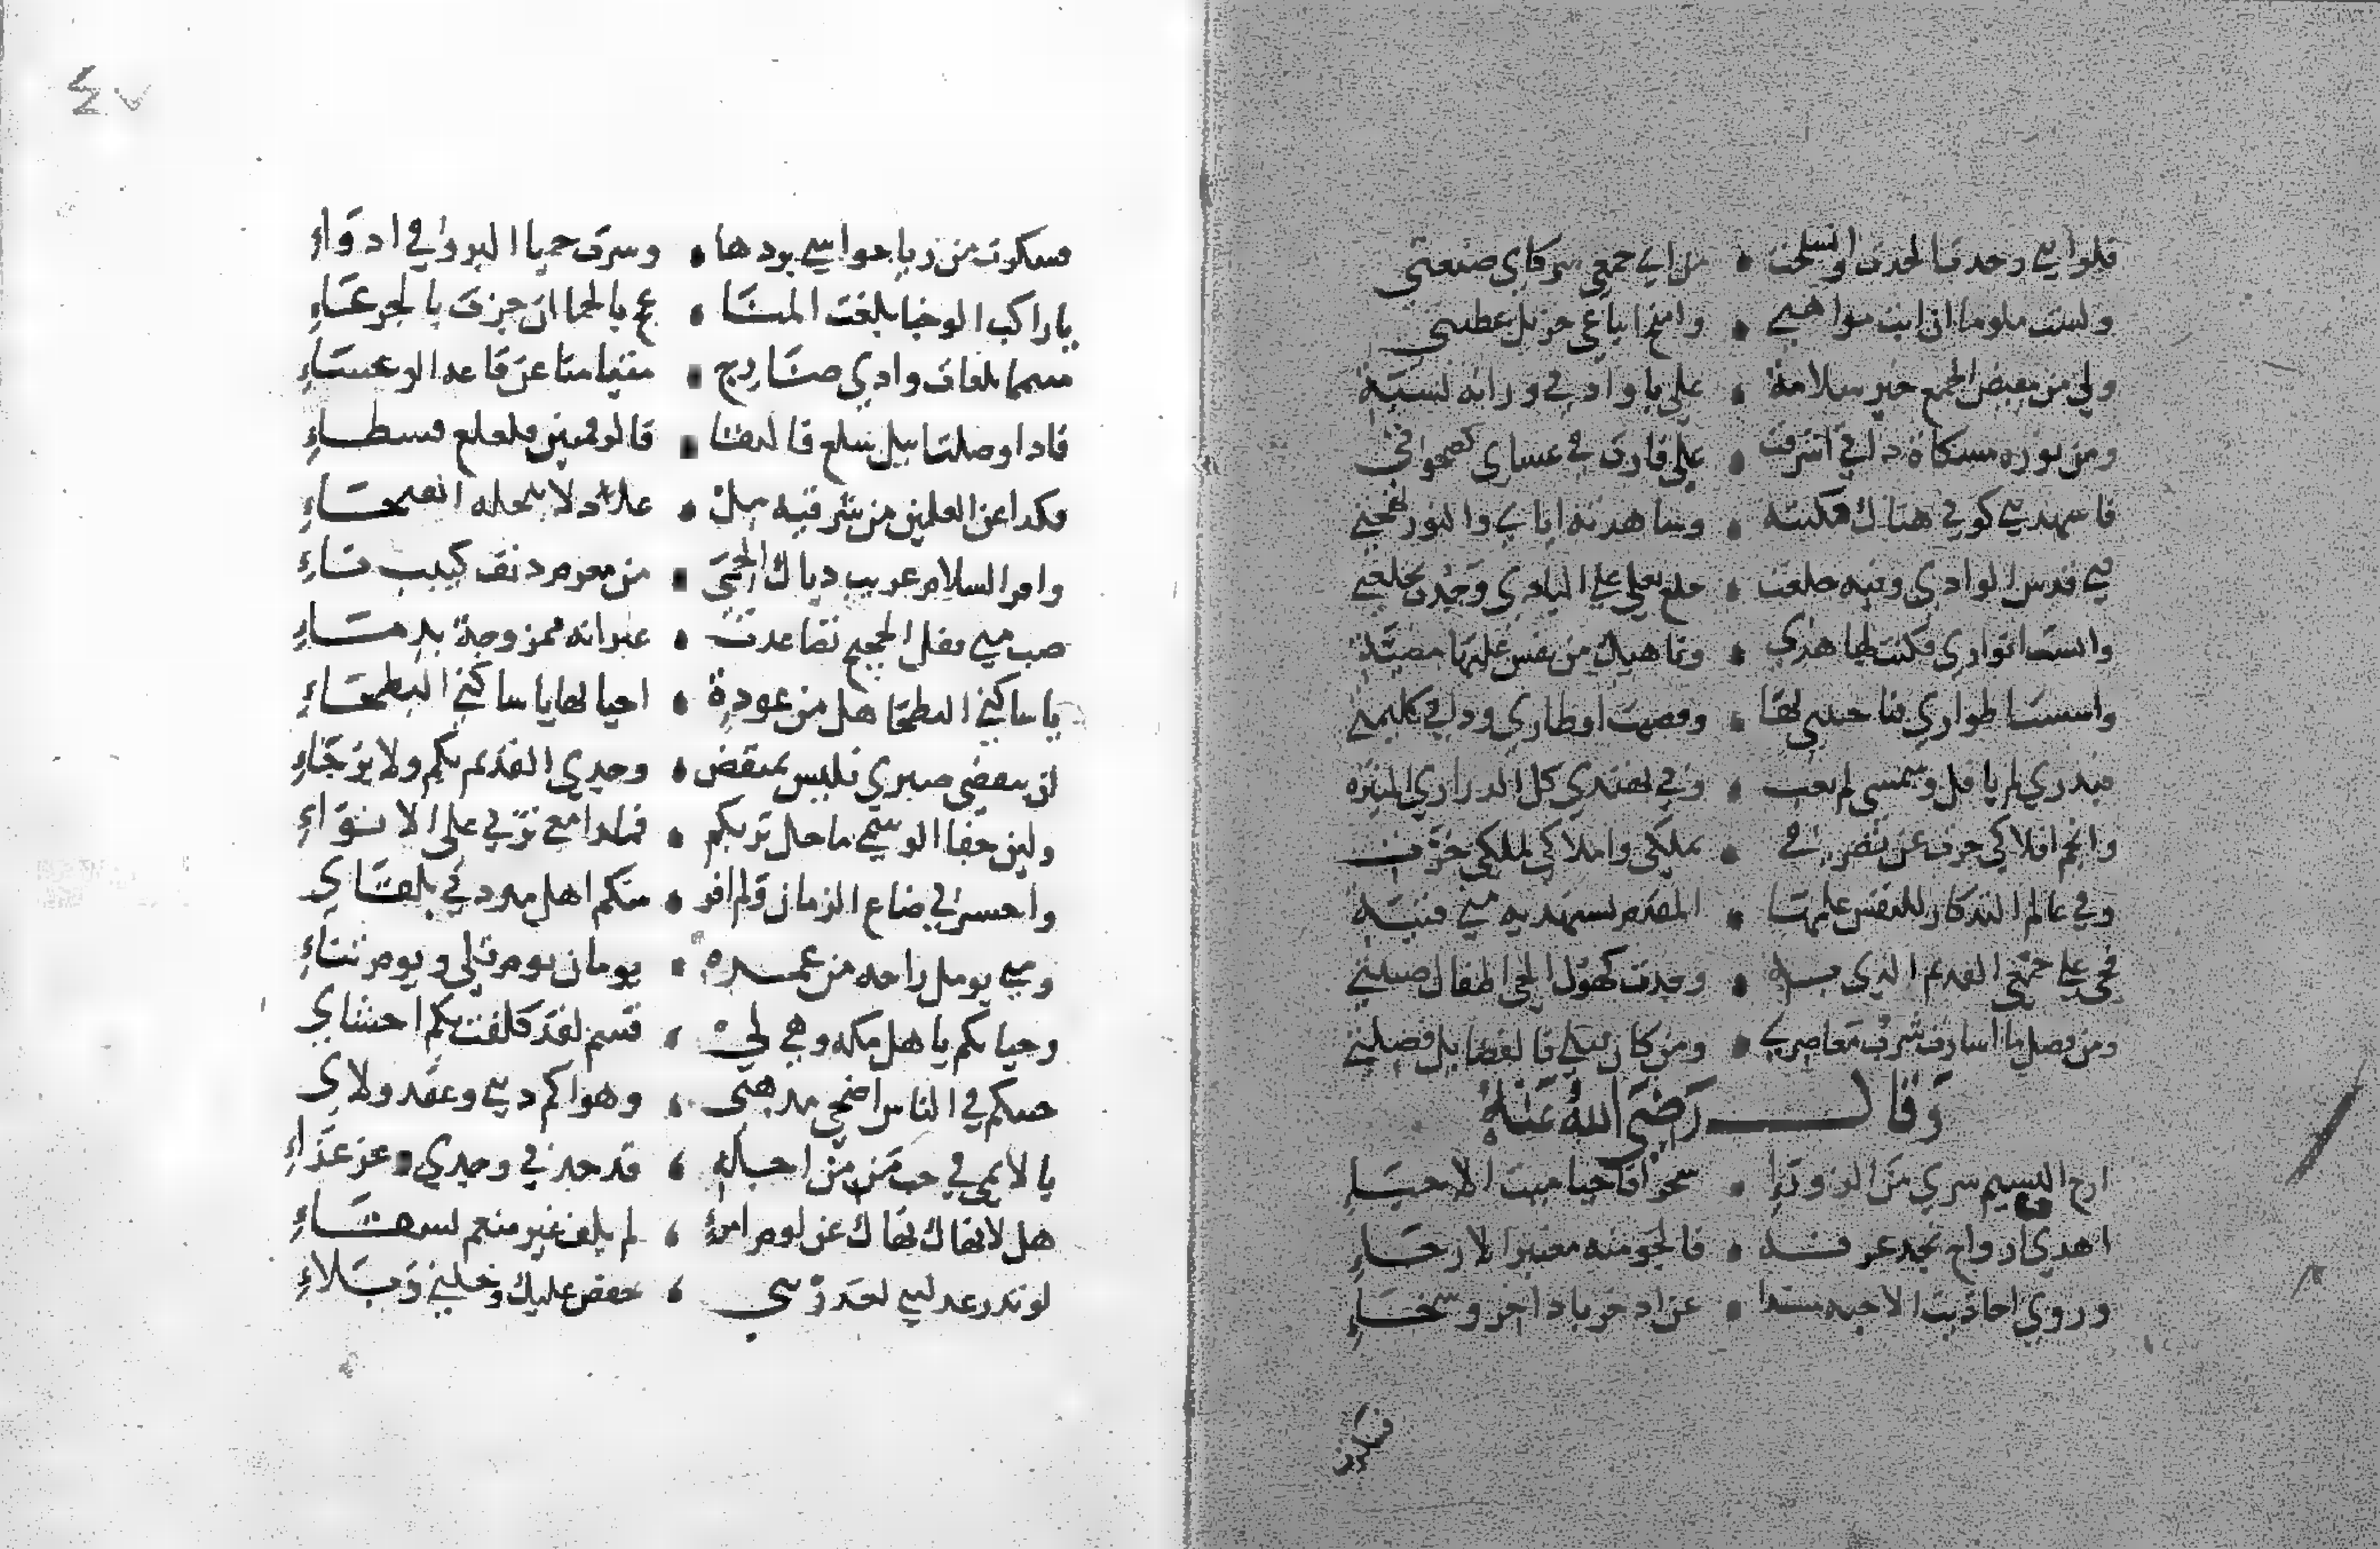 فلو انني وحدت الحدت وانسلخت • من اي جمعي مشركا بي صنعتي
ولست ملوما ان ابث مواهبي • وامنح اتباعي جزيل عطيتي
ولي من مفيض الجمع خير سلامه • علي باو ادني ورانه نسبة
ومن نوره مشكاة ذاتي اشرقت • علي فنارت بي عشاي كضحوتي
فاشهدتني كوني هناك فكنته • وشاهدته اياي والنور بهجتي
فبي قدس الوادي وفيه خلعت • خلع نعلي علي النادي وجدت بخلعتي
وانست انواري فكنت لها هدي • وناهيك من نفس عليها مضيئة
واسست اطواري فناجيتني بها • وقضيت اوطاري وذاتي كليمتي
فبدري لم يافل وشمسي لم تغب • وبي تهتدي كل الدراري المنيره
وانجم افلاكي جرت عن تصرفي • بملكي واملاكي لملكي خرت
وفي عالم التذكار للنفس علمها • المقدم تستهديه مني فتية
فحي علي جمعي القديم الذي به • وجدت كهول الحي اطفال صبيتي
ومن فضل ما اسارت شرب معاصري • ومن كان قبلي فالفضايل فضلتي
وَقَالَ رَضِيَ اللهُ عَنْهُ
ارج النسيم سري من الزوراء • سحرا فاحيا ميت الاحياءِ
اهدي ارواح نجد عرفه • فالجو منه معنبر الارجاءِ
وروي احاديث الاحبه مسندا • عن اذخر باذاخر وسخاءِ
فسكرت
٤٧
فسكرت من ريا حواشي برده • وسرت حميا البرؤ في ادواءِ
يا راكب الوجنا بلغت المنا • عج بالحما ان جزت بالجرعاءِ
متيمما تلعات وادي ضارج • متيامنا عن قاعه الوعساءِ
فاذا وصلت اثيل سلع فالنقا • فالرقمتين فلعلع فشظاءِ
فكذا عن العلمين من شرقيه مل • عادلا للحله الفيحاءِ
واقر السلام عريب ذياك الحِمَى • من مغرم دنف كئيب ناءِ
صب متي قفل الحجيج تصاعدت • عبراته ممزوجة بدماءِ
يا ساكني البطحا هل من عودة • احيا بها يا ساكني البطحاءِ
ان ينقضي صبري فليس بمنقض • وجدي القديم بكم ولا برحاءِ
ولين جفا الوسمي ماحل تربكم • فمدامعي تربي علي الانواءِ
واحسرتي ضاع الزمان ولم افز • منكم اهل مودتي بلقاي
ومتي يومل راحه من عمره • يومان يوم قلي ويوم تناءِ
وحياتكم ياهل مكه وهي لي • قسم لقد كلفت بكم احشاي
حبكم في الناس اضحي مذهبي • وهواكم ديني وعقد ولاي
يا لايمي في حب من من اجله • قد جد بي وجدي وعز عزاءِ
هل لا نهاك نهاك عن لوم امرئ • لم يلف غير منعم بشقاءِ
لو تدر فيم عذلتني لعذرتني • خفض عليك وخليني وبلاءِ